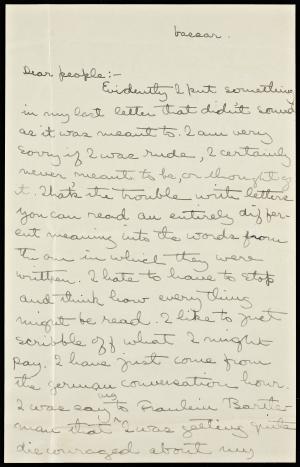 Vassar.
Dear people:-
Evidently I put something
in my last letter that didn't sound
as it was meant to. I am very
sorry if I was rude, I certainly
never meant to be, or thought of
it. That's the trouble with letters
you can read an entirely differ-
ent meaning into the words from
the one in which they were
written. I hate to have to stop
and think how everything
might be read. I like to just
scribble off what I might
say. I have just come from
the german conversation hour.
I was saying to Fraulein
man that I was getting quite
discouraged about my